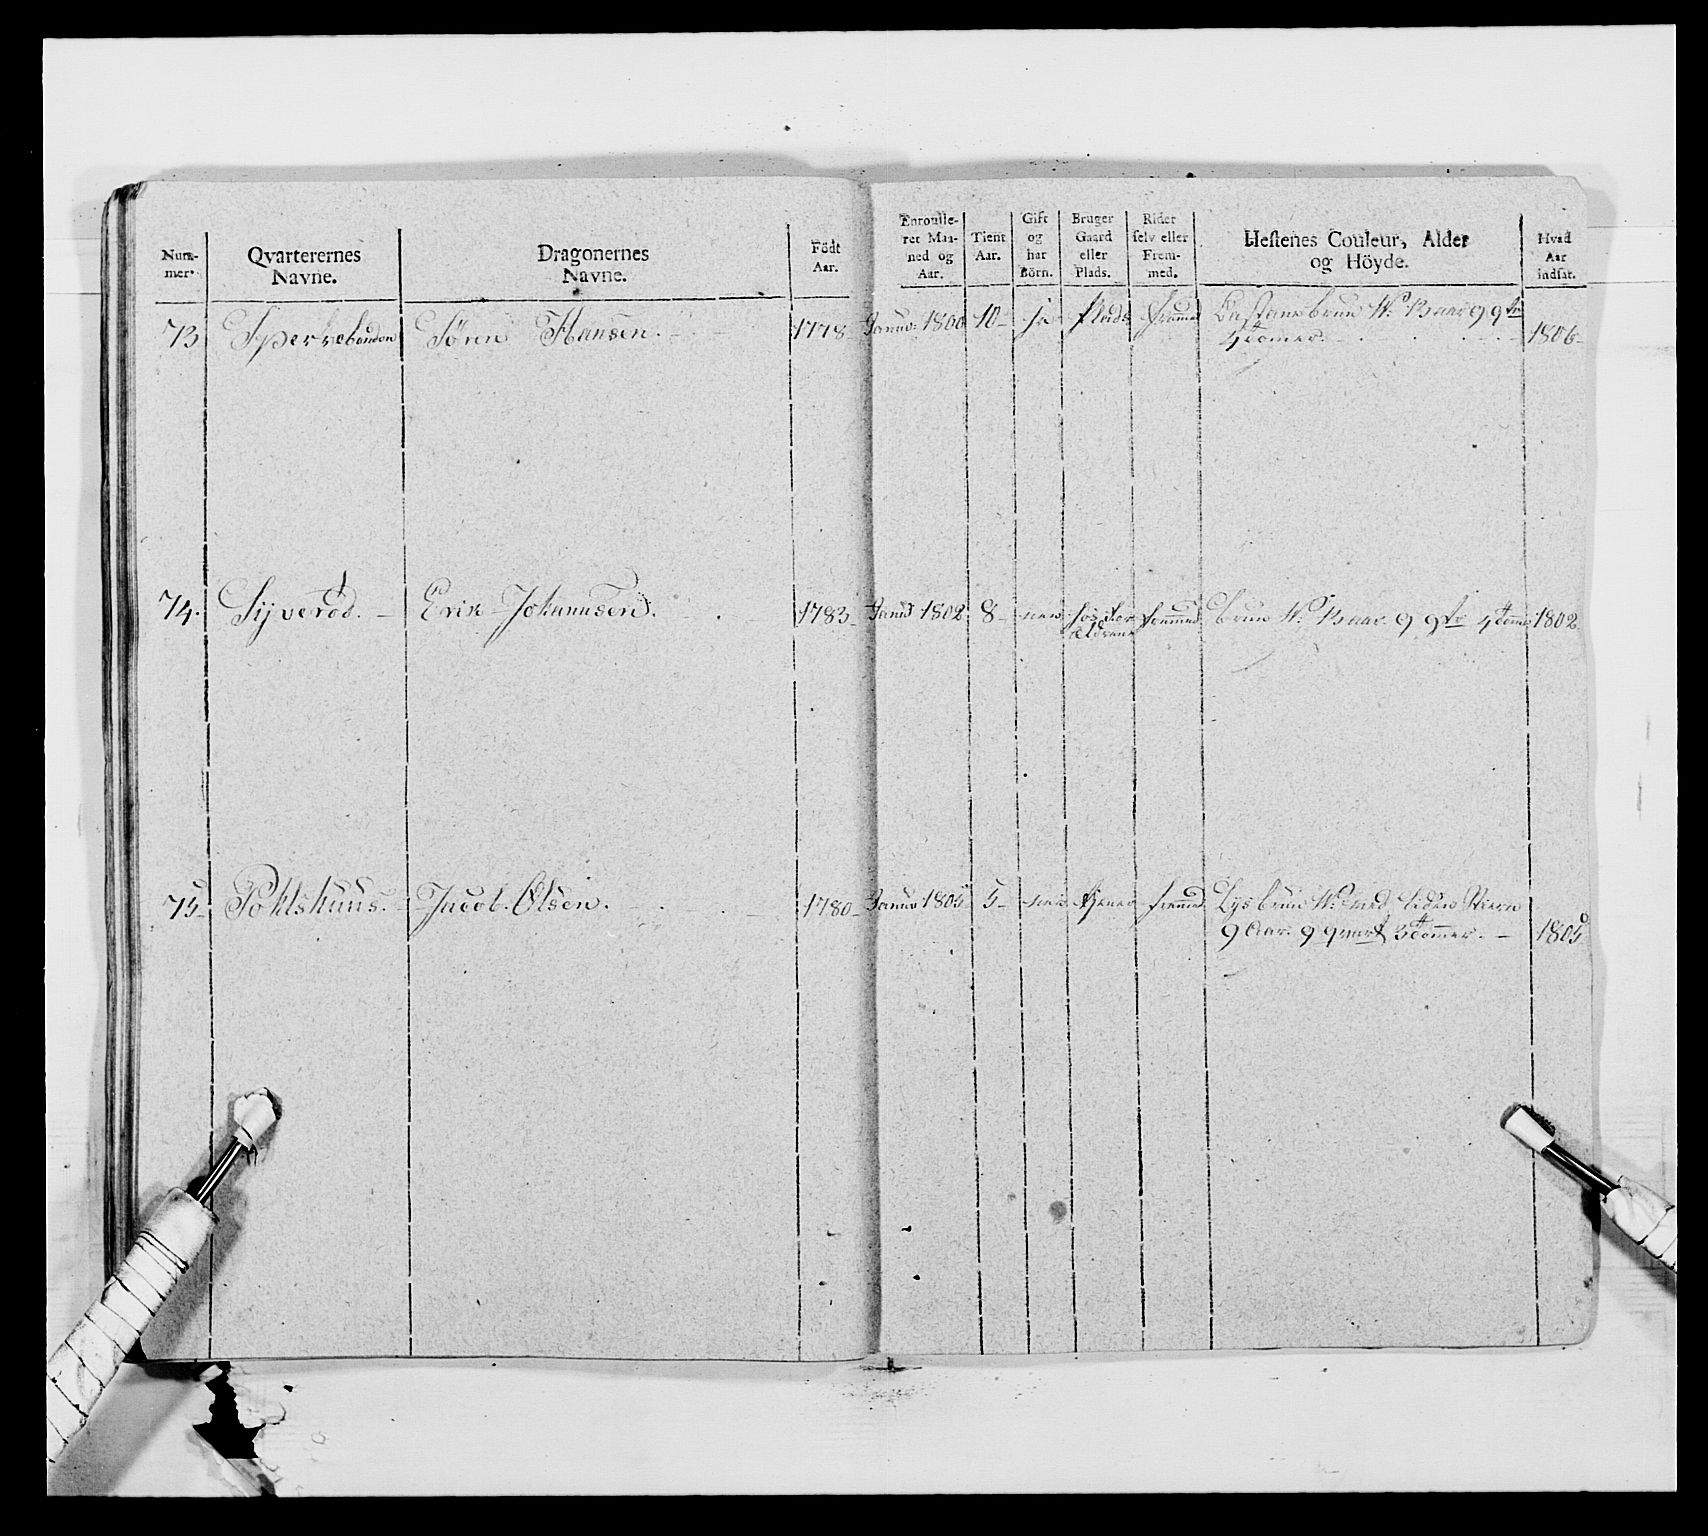 Num-
mer.
Qvarterernes
Navne.
Dragonernes
Navne.
Födt
Aar.
Enroulle-
ret Maa-
ned og
Aar.
Tient
Aar.
Gift
og
har
Börn.
Bruger
Gaard
eller
Plads.
Rider
selv eller
Frem-
med.
Hestenes Couleur, Alder
og Höyde.
Hvad
Aar
indsat.
73 Sperrebonden Søren Hansen. 1778 Januv: 1800 10 - ja Plads fremmed Castanebrun W: 13 aar 9 qtr
4 tommer. 1806
74. Syverød. - Erik Johannsen. 1783 Januv 1802 8 - nei hos
Ældrene fremmed brun W: 13 aar 9 qtr 4 tomr 1802
75 Pohlshuus. Jacob Olsen. 1780 Januv 1805 5 - nei tjener fremmed Lysbrun W: med liden Stiern
9 Aar. 9 qvart 3 tommer. - 1805